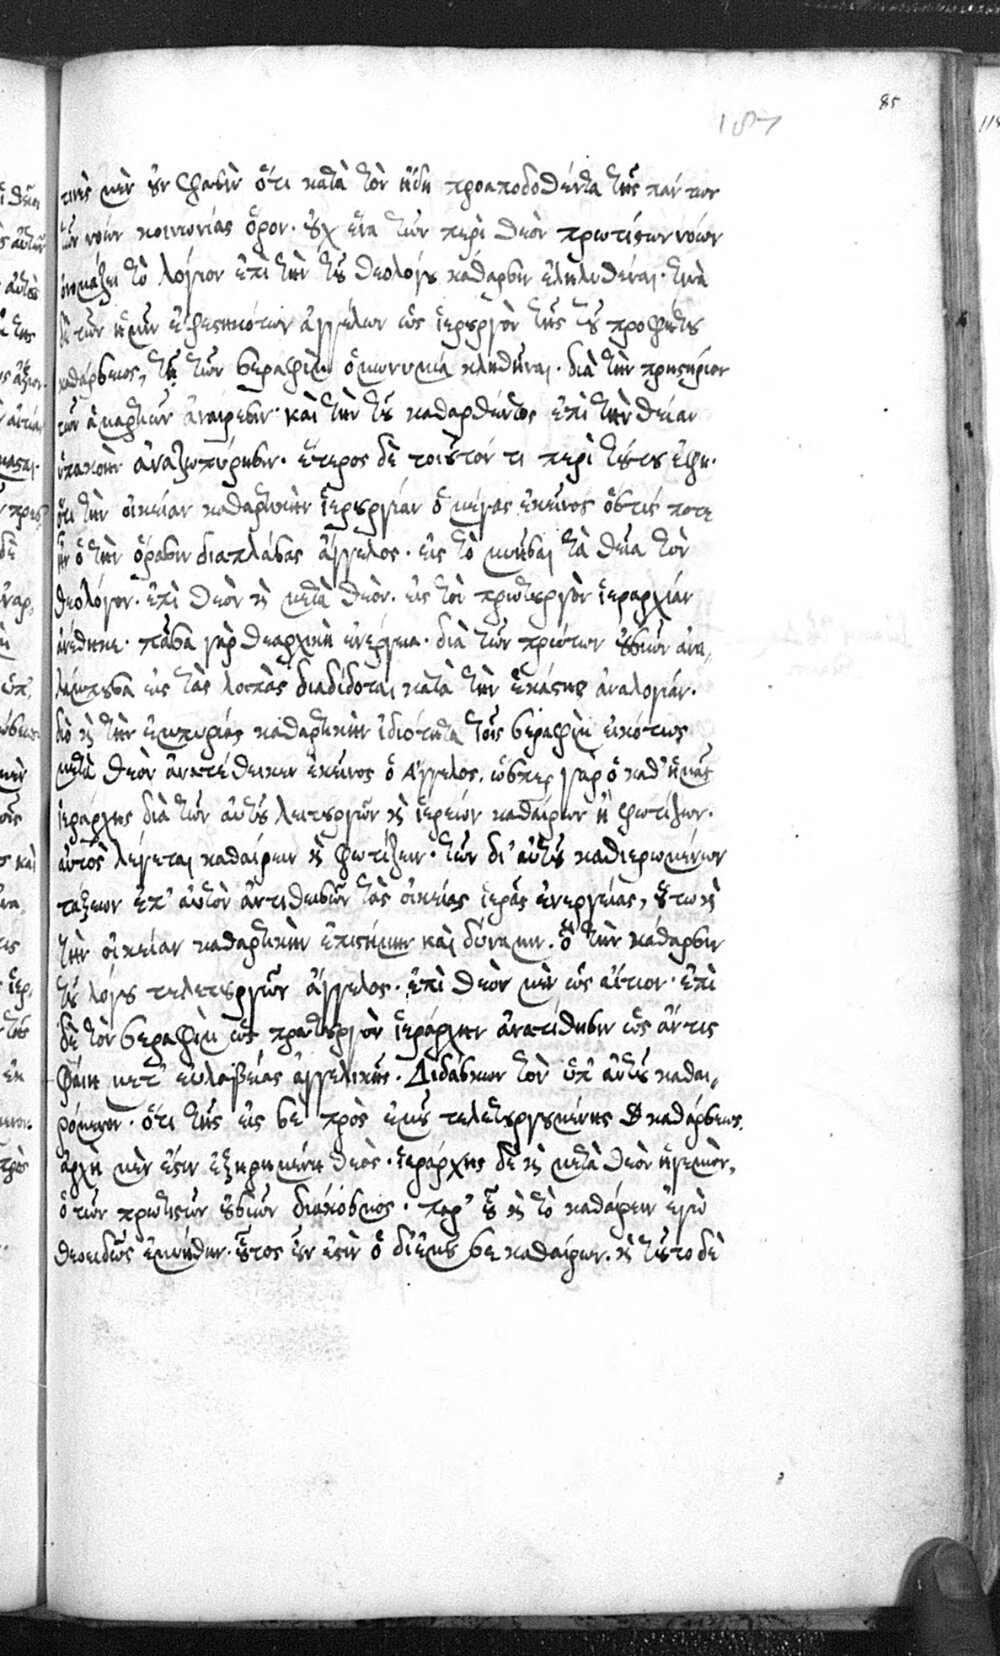 85
187
τινὲς μὲν οὖν φασὶν ὅτι κατὰ τὸν ἤδη προαποδοθέντα τῆς πάντων
τῶν νοῶν κοινωνίας ὅρον· οὐχ ἕνα τῶν περὶ θεὸν πρωτίστων νοῶν
ὀνομάζει τὸ λόγιον ἐπὶ τὴν τοῦ θεολόγου κάθαρσιν ἐληλυθέναι· τινὰ
δὲ τῶν ἡμῶν ἐφεστηκότων ἀγγέλων ὡς ἱερουργὸν τῆς τοῦ προφήτου
καθάρσεως, τῇ τῶν σεραφὶμ ὁμωνυμία κληθῆναι· διὰ τὴν πρηστήριον
τῶν ἁμαρτιῶν ἀναίρεσιν· καὶ τὴν τοῦ καθαρθέντος ἐπὶ τὴν θείαν
ὑπακοὴν ἀναζωπύρησιν. ἕτερος δὲ τοιοῦτόν τι περὶ τούτου ἔφη.
ὅτι τὴν οἰκείαν καθαρτικὴν ἱερουργίαν ὁ μέγας ἐκεῖνος ὅστίς ποτε
ἦν ὁ τὴν ὅρασιν διαπλάσας ἄγγελος. εἰς τὸ μυῆσαι τὰ θεῖα τὸν
θεολόγον· ἐπὶ θεὸν κὶ μετὰ θεὸν. εἰς τὴν πρωτουργὸν ἱεραρχίαν
ἀνέθηκε. πᾶσα γὰρ θεαρχικὴ ἐνέργεια· διὰ τῶν πρώτων οὐσιῶν ἀνα,
λάμπουσα εἰς τὰς λοιπὰς διαδίδοται κατὰ τὴν ἑκάστης ἀναλογίαν.
διὸ κὶ τὴν ἐμπυρίας καθαρτικὴν ἰδιότητα τοῖς σεραφὶμ εἰκότως
μετὰ θεὸν ἀνατέθεικεν ἐκεῖνος ὁ ἄγγελος. ὥσπερ γὰρ ὁ καθ' ἡμᾶς
ἱεράρχης διὰ τῶν αὐτοῦ λειτουργῶν κὶ ἱερέων καθαίρων ἢ φωτίζων.
αὐτὸς λέγεται καθαίρειν κὶ φωτίζειν· τῶν δι' αὐτοῦ καθιερωμένων
τάξεων ἐπ' αὐτὸν ἀντιθεισῶν τὰς οἰκείας ἱερὰς ἐνεργείας, οὕτω κὶ
τὴν οἰκείαν καθαρτικὴν ἐπιστήμην καὶ δύναμιν. ὁ τὴν κάθαρσιν
τοῦ λόγου τελετουργῶν ἄγγελος. ἐπὶ θεὸν μὲν ὡς αἴτιον· ἐπὶ
δὲ τὸν σεραφὶμ ὡς πρωτουργὸν ἱεράρχην ἀνατίθησιν ὡς ἄν τις
φαίη μετ' εὐλαβείας ἀγγελικῆς. διδάσκων τὸν ὑπ' αὐτοῦ καθαι,
ρόμενον· ὅτι τῆς εἰς σὲ πρὸς ἐμοῦ τελετουργουμένης καθάρσεως.
ἀρχὴ μέν ἐστιν ἐξῃρημένη θεός· ἱεράρχης δὲ κὶ μετὰ θεὸν ἡγεμὼν,
ὁ τῶν πρώτων οὐσιῶν διάκοσμος. παρ' οὗ κὶ τὸ καθαίρειν ἐγὼ
θεοειδῶς ἐμυήθην. οὗτος οὖν ἐστὶν ὁ δι' ἐμοῦ σε καθαίρων. κὶ τοῦτο δὲ